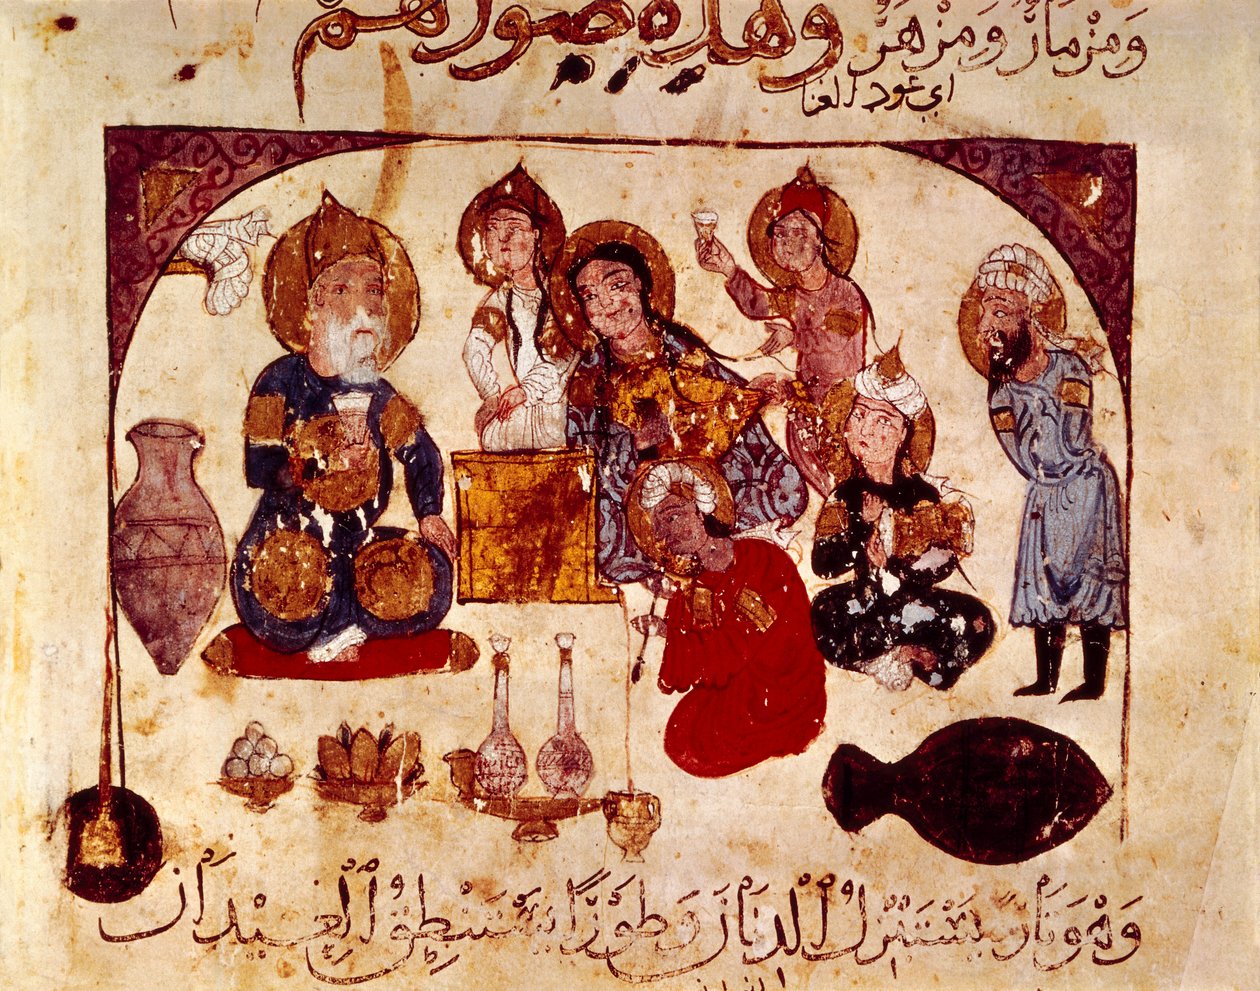 ومزمار ومزهر وهذه صورهم
اي عود الغنا
وَهْوَ تَارَةً يَسْتَبْزِلُ الدِّنَانَ وَطَوْرًا يَسْتَنْطِقُ الْعِيْدَانَ